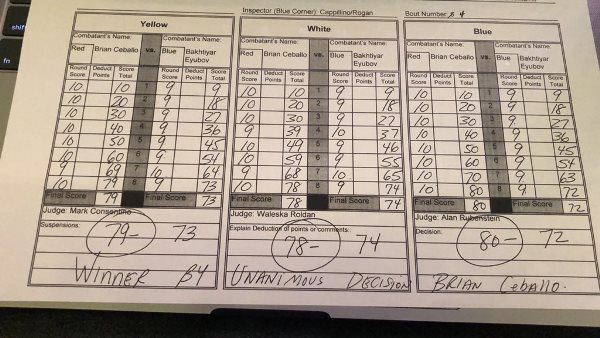 Inspector (Blue Corner): Cappillino/Rogan Bout Number 4
Yellow White Blue
Combatant's Name: Combatant's Name: Combatant's Name: Combatant's Name: Combatant's Name: Combatant's Name:
Red Brian Ceballo vs. Blue Bakhtiyar Eyubov Red Brian Ceballo vs. Blue Bakhtiyar Eyubov Red Brian Ceballo vs. Blue Bakhtiyar Eyubov
Round Score Deduct Points Score Total Round Score Deduct Points Score Total Round Score Deduct Points Score Total Round Score Deduct Points Score Total Round Score Deduct Points Score Total Round Score Deduct Points Score Total
10 10 1 9 9 10 10 1 9 9 10 10 1 9 9
10 20 2 9 18 10 20 2 9 18 10 20 2 9 18
10 30 3 9 27 10 30 3 9 27 10 30 3 9 27
10 40 4 9 36 9 39 4 10 37 10 40 4 9 36
10 50 5 9 45 10 49 5 9 46 10 50 5 9 45
10 60 6 9 54 10 59 6 9 55 10 60 6 9 54
9 69 7 10 64 9 68 7 10 65 10 70 7 9 63
10 79 8 9 73 10 78 8 9 74 10 80 8 9 72
Final Score 79 Final Score 73 Final Score 78 Final Score 74 Final Score 80 Final Score 72
Judge: Mark Consentino Judge: Waleska Roldan Judge: Alan Rubenstein
Suspensions: Explain Deduction of points or comments: Decision:
79- 73 78- 74 80- 72
WINNER BY UNANIMOUS DECISION BRIAN Ceballo.